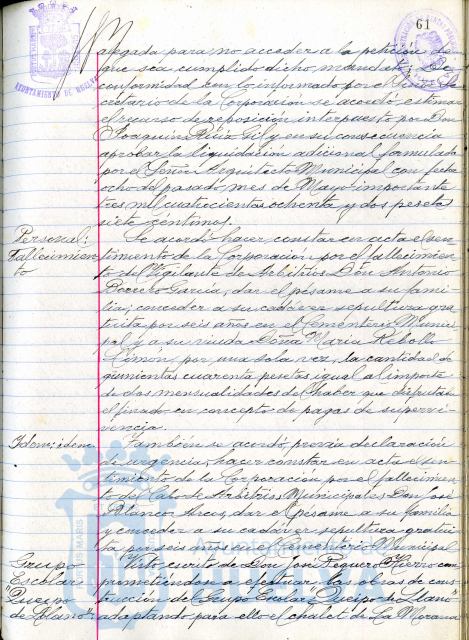 61
AYUNTAMIENTO DE HUELVA
alegada para no acceder a la petición de
que sea cumplido dicho mandan
conformidad con lo informado por el Señor Se-
cretario de la Corporación se acordó estimar
el recurso de reposición interpuesto por Don
Joaquín Ruiz Gil y en su consecuencia
aprobar la liquidación adicional formulada
por el Señor Arquitecto Municipal con fecha
ocho del pasado mes de Mayo importante
tres mil cuatrocientas ochenta y dos pesetas
siete céntimos.
Personal:
Fallecimien-
to
Se acordó hacer constar en acta el sen-
timiento de la Corporación por el fallecimien-
to del Vigilante de Arbitrios Don Antonio
Borrero García, dar el pésame a su fami-
lia, conceder a su cadáver sepultura gra-
tuita por seis años en el Cementerio Munici-
pal y a su viuda Doña María Rebollo
Limón, por una sola vez, la cantidad de
quinientas cuarenta pesetas igual al importe
de dos mensualidades de haber que disfrutaba
el finado en concepto de pagas de supervi-
vencia.
Idem: idem.
También se acordó, previa declaración
de urgencia, hacer constar en acta el sen-
timiento de la Corporación por el fallecimien-
to del Cabo de Arbitrios Municipales Don José
Blanco Arcos, dar el pésame a su familia
y conceder a su cadáver sepultura gratui-
ta por seis años en el Cementerio Municipal
Grupo
Escolar
"Queipo
de Llano":
Visto escrito de Don José Peguero Fierro com-
prometiéndose a efectuar las obras de cons-
trucción del Grupo Escolar "Queipo de Llano"
adaptando para ello el chalet de La Morana